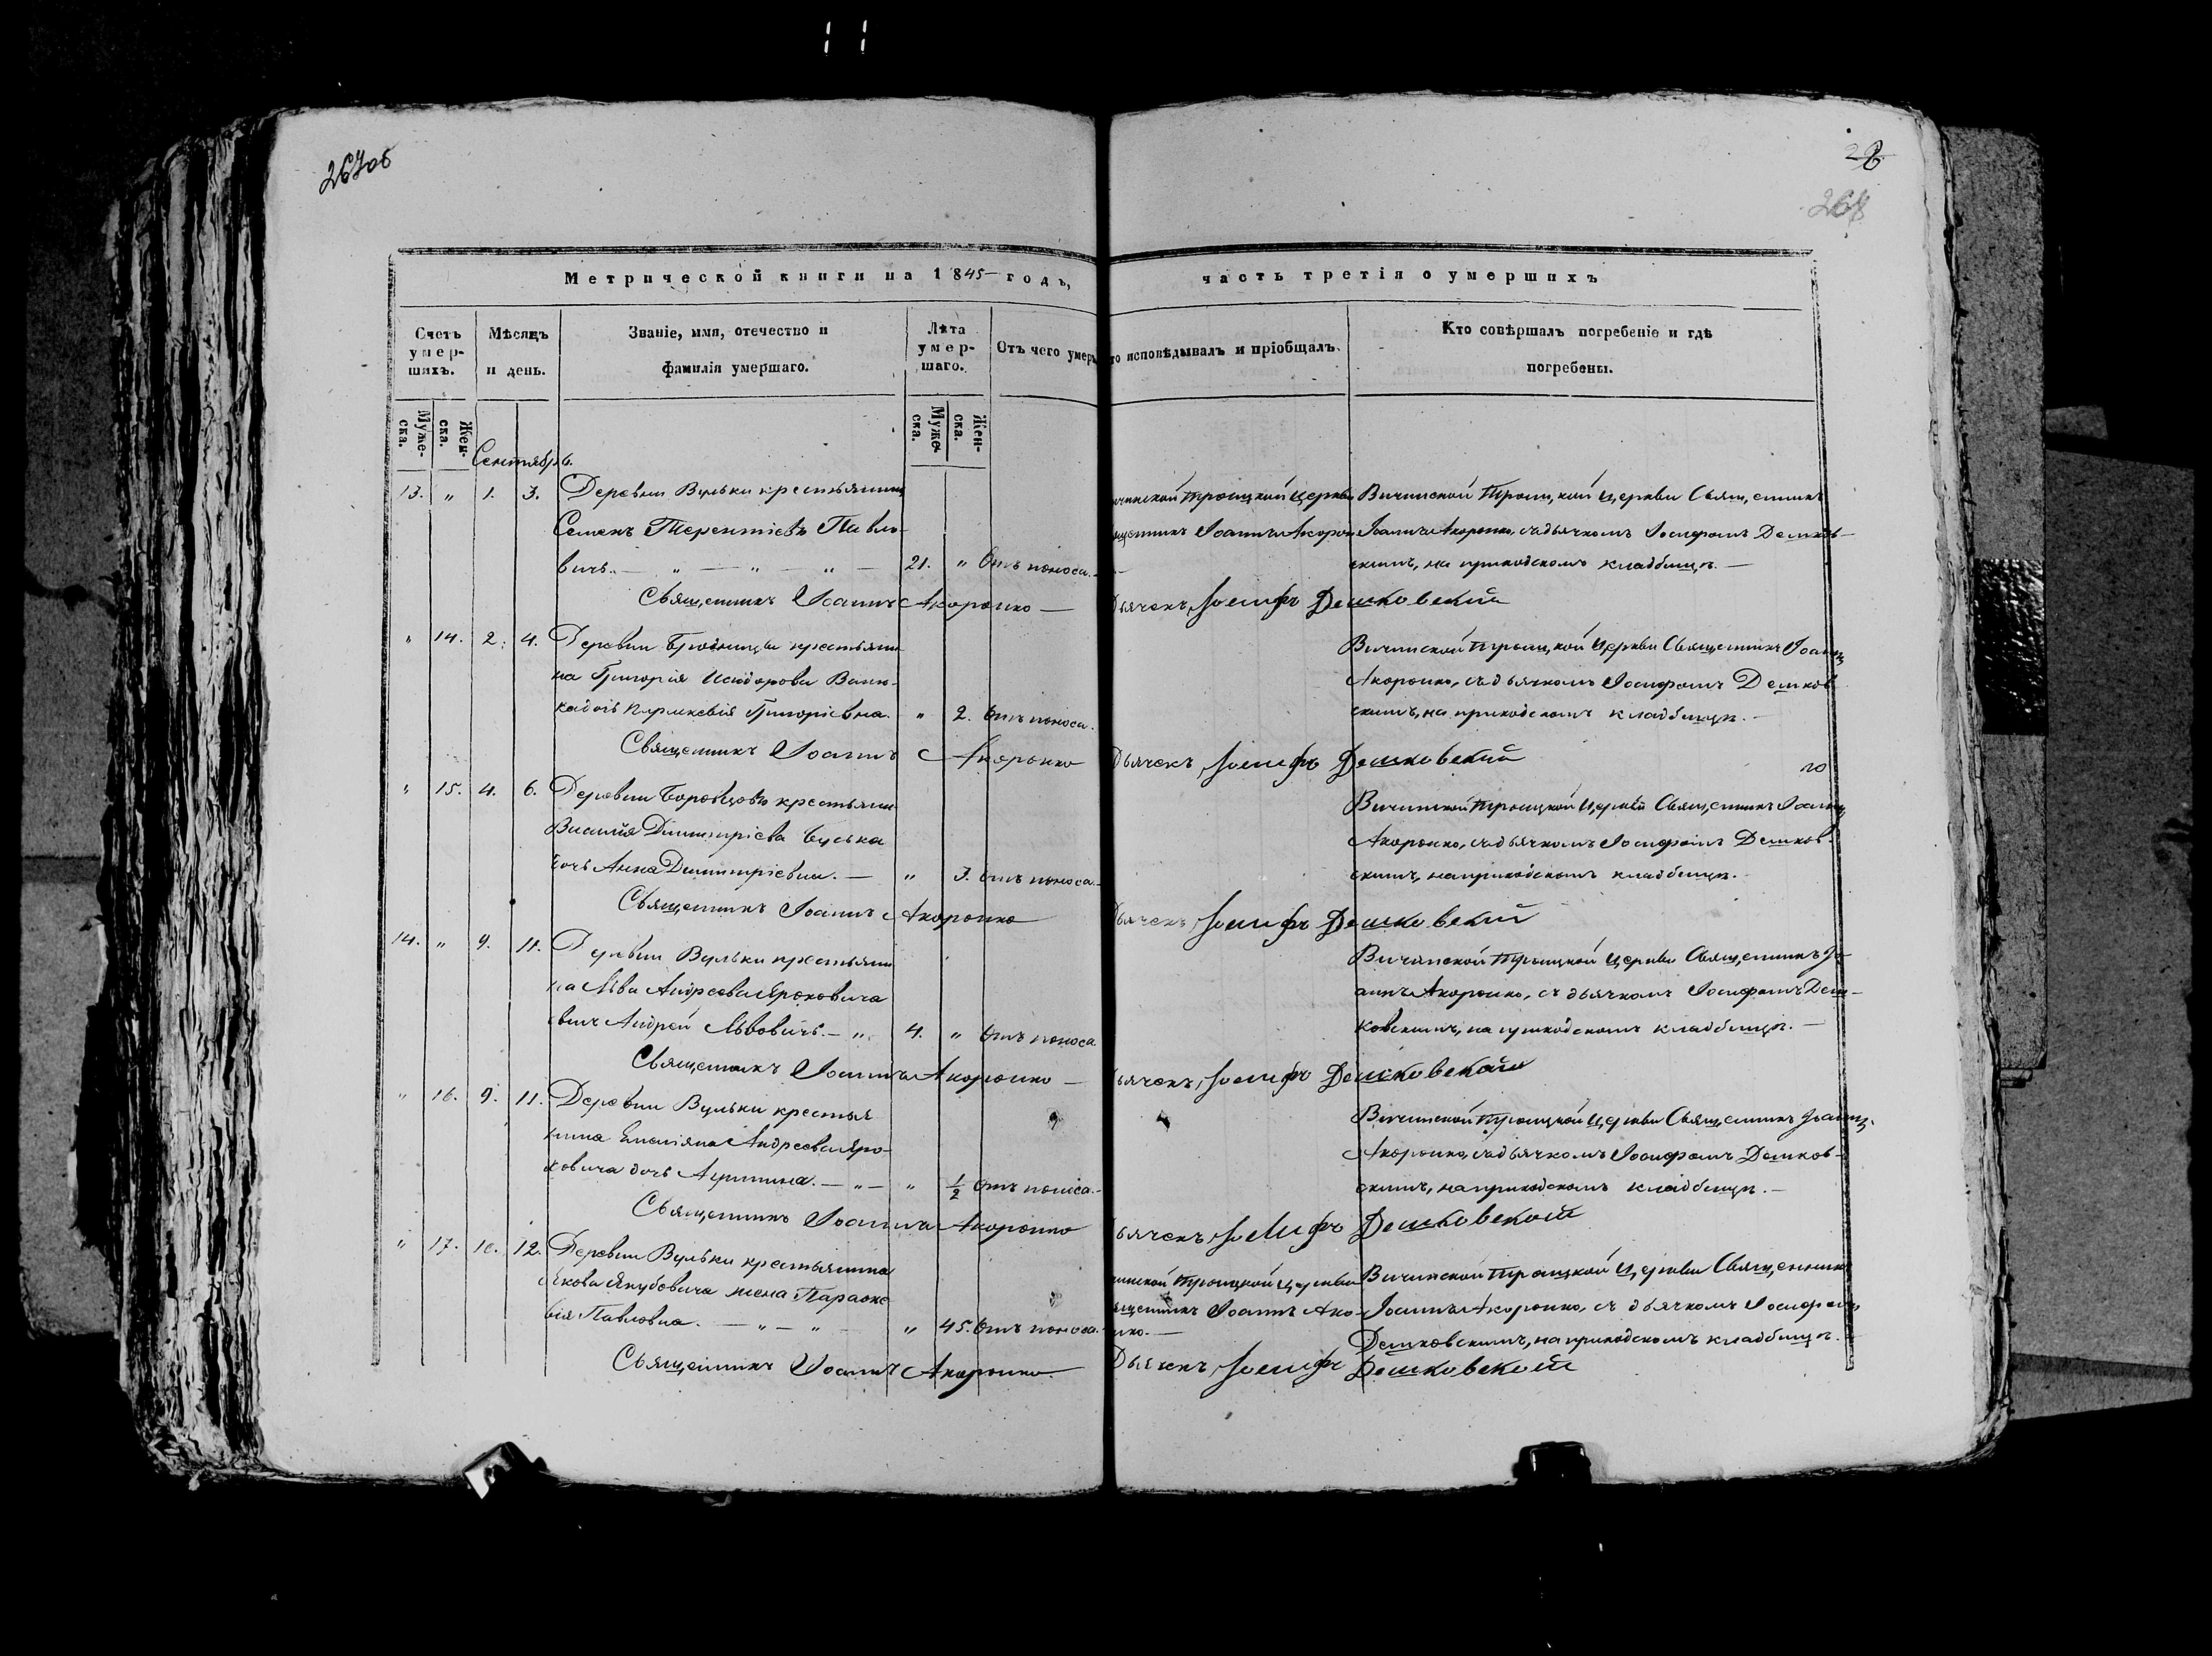 267об
28
268
Метрической книги на 1845 годъ, часть третія о умершихъ
Счетъ умер-шихъ.
Мѣсяцъ и день.
Званіе, имя, отечество и фамилія умершаго.
Лѣта умер-шаго.
Отъ чего умеръ
то исповѣдывалъ и пріобщалъ.
Кто совѣршалъ погребеніе и гдѣ погребены.
Муже-ска.
Жен-ска.
Муже-ска.
Жен-ска.
Сентябрь.
13. " 1. 3. Деревни Вульки крестьянинъ
Семенъ Терентіевъ Павло-
вичъ. — " — " — " — 21. " Отъ поноса.
чинской Троицкой Церкви
щенникъ Іоаннъ Акорон
Вичинской Троицкой Церкви Священникъ
Іоаннъ Акоронко, съ дьячкомъ Іосифомъ Дешков-
скимъ, на приходскомъ кладбищѣ. —
Священникъ Іоаннъ Акоронко — Дьячекъ Іосифъ Дешковскій
" 14. 2. 4. Деревни крестьяни-
на Григорія Исидорова
дочь Параскевія Григоріевна. " 2. Отъ поноса.
Вичинской Троицкой Церкви Священникъ Іоаннъ
Акоронко, съ дьячкомъ Іосифомъ Дешков-
скимъ, на приходскомъ кладбищѣ. —
Священникъ Іоаннъ Акоронко Дьячекъ Іосифъ Дешковскій
" 15. 4. 6. Деревни крестьяни
Димитріева
дочь Анна Димитріевна. — " 3. Отъ поноса. —
Вичинской Троицкой Церкви Священникъ Іоаннъ
Акоронко, съ дьячкомъ Іосифомъ Дешков-
скимъ, на приходскомъ кладбищѣ. —
Священникъ Іоаннъ Акоронко Дьячекъ Іосифъ Дешковскій
14. " 9. 11. Деревни Вульки крестьяни
на Льва Андреева Ярохови­ча
сынъ Андрей Львовичъ. — " 4. " Отъ поноса
Вичинской Троицкой Церкви Священникъ Іо-
аннъ Акоронко, съ дьячкомъ Іосифомъ Деш-
ковскимъ, на приходскомъ кладбищѣ. —
Священникъ Іоаннъ Акоронко — ьячекъ Іосифъ Дешковскій
" 16. 9. 11. Деревни Вульки крестья
нина Емеліяна Андреева Яро-
ховича дочь — " — " 1/2 Отъ поноса. —
Вичинской Троицкой Церкви Священникъ Іоаннъ
Акоронко, съ дьячкомъ Іосифомъ Дешков-
скимъ, на приходскомъ кладбищѣ. —
Священникъ Іоаннъ Акоронко ьячекъ Іосифъ Дешковскій
" 17. 10. 12. Деревни Вульки крестьянина
Якова Якубовича жена Параске
вія Павловна. — " — " — " 45. Отъ поноса. —
инской Троицкой Церкви
ященникъ Іоаннъ Ако-
нко. —
Вичинской Троицкой Церкви Священникъ
Іоаннъ Акоронко, съ дьячкомъ Іосифомъ
Дешковскимъ, на приходскомъ кладбищѣ.
Священникъ Іоаннъ Акоронко. Дьячекъ Іосифъ Дешковскій